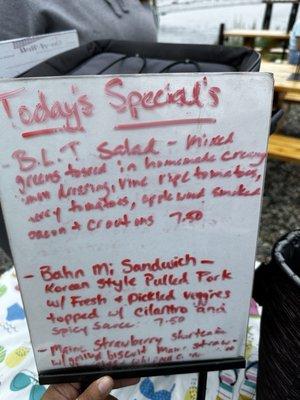 Today's Special's
- B.L.T Salad - Mixed
greens tossed in homemade creamy
dressing, vine ripe tomatoes,
tomatoes, applewood smoked
bacon & croutons 7.50
- Bahn Mi Sandwich -
Korean Style Pulled Pork
w/ Fresh & Pickled veggies
topped w/ cilantro and
spicy sauce 7.50
- Maine Strawberry Shortcake
w/ biscuit